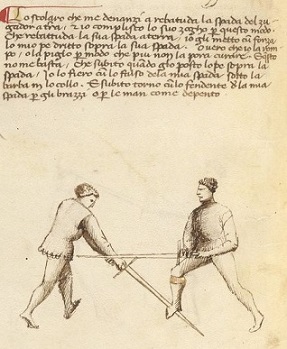 Lo scolaro che me denanzi a rebatuda la spada del zu
gadore a tera, & io complisco lo suo zogho per questo modo.
Che rebatuda la sua spada a terra io gli metto cum forza
lo mio pe dritto sopra la sua spada. Overo che io la rom
po, o la piglo per modo che più non la porà curare. E questo
no me basta, che subito quado glo posto lo pe sopra la
spada, Io lo fiero cu lo falso de la mia spada sotto la
barba in lo collo. E subito torno cu lo fendente de la mia
spada per gli brazzi o per le man come depento